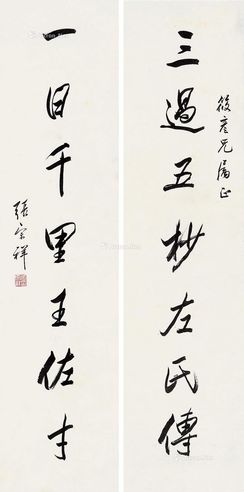 筱彦兄属正
三過五抄左氏傳
一日千里王佐才
張宗祥